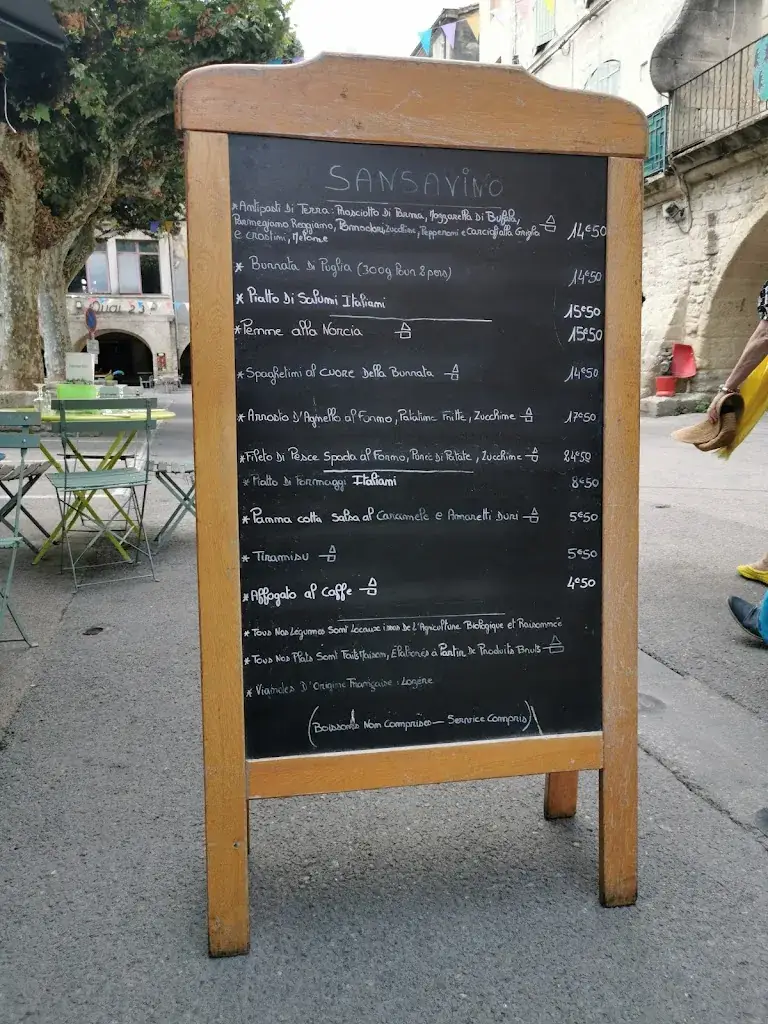 SANSAVINO
*Antipasti Di Terra: Prosciotto Di Parma, Mozzarella Di Bufala,
Parmegiano Reggiano, Pomodori, Zucchine, Pepperoni e Carciofi alla Griglia
e crostini, Melone 14€50
* Burrata Di Puglia (300g Pour 2 pers) 14€50
* Piatto Di Salumi Italiani 15€50
*Penne alla Norcia 15€50
*Spaghettini al CUORE Della Burrata 14€50
*Arrosto D'Agnello al Forno, Patatine Fritte, Zucchine 17€50
*Fileto Di Pesce Spada al Forno, Puré Di Patate, Zucchine 24€50
* Piatto Di Formaggi Italiani 8€50
* Panna cotta Salsa al Caramele e Amaretti Duri 5€50
* Tiramisu 5€50
*Affogato al Caffe 4€50
* Tous Nos Légumes Sont Locaux issus De L'Agriculture Biologique et Raisonnée
* Tous Nos Plats Sont Faits Maison, Elaborés à Partir De Produits Bruts
* Viandes D'Origine Française: Lozère
(Boissons Non Comprises — Service Compris)
QUAI 2